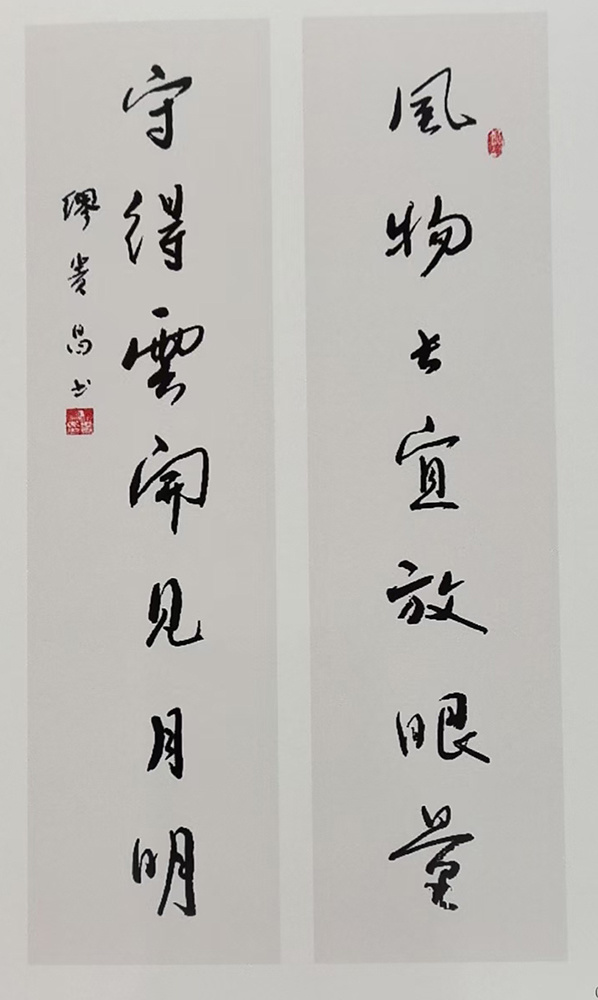 風物长宜放眼量
守得雲開見月明
缪贵昌书